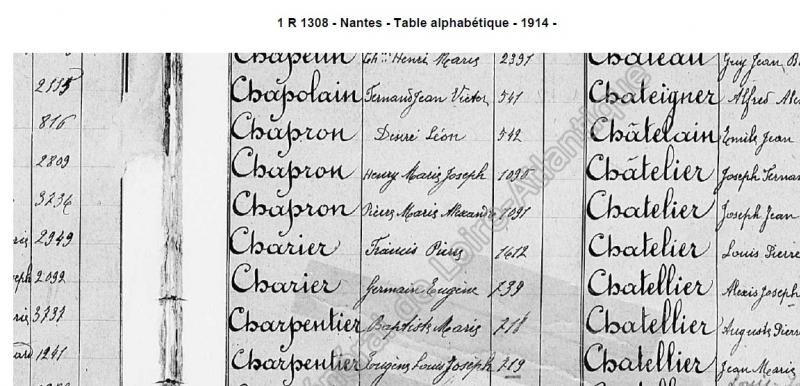 1 R 1308 - Nantes - Table alphabétique - 1914 -
Chapelin Henri Marie 2391
Château Guy Jean
2115
Chapolain Fernand Jean Victor 541
Chateigner Alfred
816
Chapron Désiré Léon 542
Châtelain Emile Jean
2809
Chapron Henry Marie Joseph 1090
Châtelier Joseph
3236
Chapron Pierre Marie Alexandre 1091
Chatelier Joseph Jean
2949
Charier Francis Pierre 1612
Chatelier Louis Pierre
2092
Charier Germain Eugène 739
Chatellier Alexis Joseph
3737
Charpentier Baptiste Marie 718
Chatellier Auguste Pierre
1241
Charpentier Louis Joseph 719
Chatellier Jean Marie
Loire-Atlantique